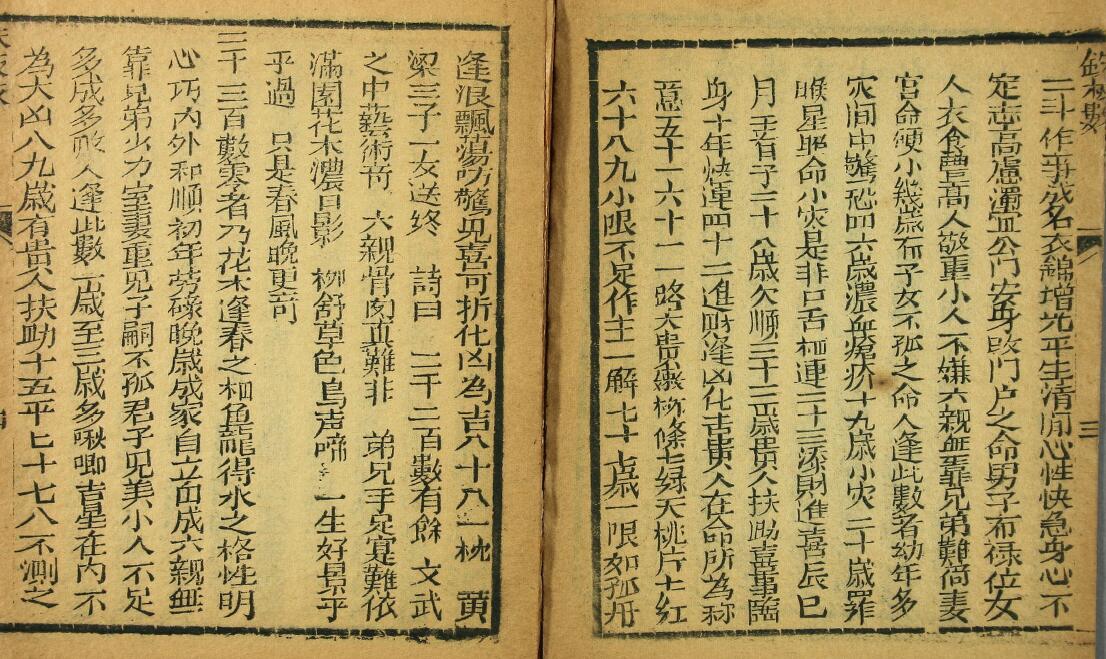 三
二斗作事成名衣錦增光平生清閒心性快急身心不
定志高慮濁宜公門安身改門户之命男子布禄位女
人衣食豊高人敬重小人不嫌六親無靠兄弟難倚妻
宮命硬小幾歳有子女不孤之命人逢此數者幼年多
灾间中驚恐四六歳濃血瘡疥十九歳小灾二十歳罪
睺星照命小灾是非口舌相連二十三添財進喜辰巳
月于有子二十八歳欠順三十二歳貴人扶助喜事臨
身十年快運四十二進财逢凶化吉貴人在命所為称
意五十一六十一一路大貴杨條七緑天桃片片紅
六十八九小限不足作主一解七十七歳一限如孤舟
逢浪飄蕩吩驚見喜可折化凶為吉八十八一枕 黄
梁三子一女送終 詩曰 二千二百數有餘 文武
之中藝術奇 六親骨肉真難非 弟兄手足寔難依
滿園花木濃日影 柳舒草色鳥声啼 一生好景乎
乎過 只是春風晚更奇
二千三百數零者乃花木逢春之相魚龍得水之格性明
心巧内外和順初年劳碌晚歳成家自立自成六親無
靠兄弟少力室妻重見子嗣不孤君子見美小人不足
多成多敗人逢此數一歳至三歳多啾唧吉星在内不
為大凶八九歳有貴人扶助十五平七十七八不測之